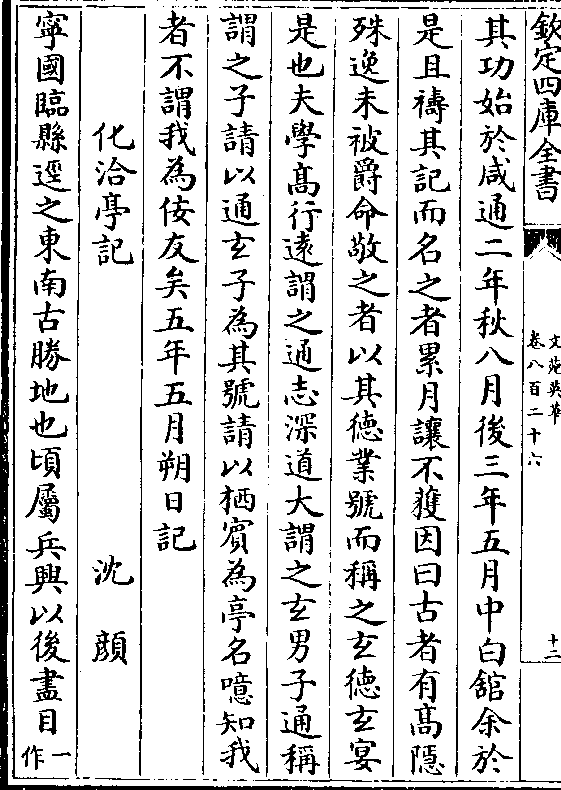 欽定四庫全書
文苑英華
卷八百二十六
十二
其功始於咸通二年秋八月後三年五月中白舘余於
是且禱其記而名之者累月讓不獲因曰古者有髙隠
殊逸未被爵命敬之者以其徳業號而稱之玄徳玄宴
是也夫學髙行逺謂之通志深道大謂之玄男子通稱
謂之子請以通玄子為其號請以栖賔為亭名噫知我
者不謂我為佞友矣五年五月朔日記
化洽亭記
沈顔
寧國臨縣逕之東南古勝地也頃屬兵興以後盡目
一
作